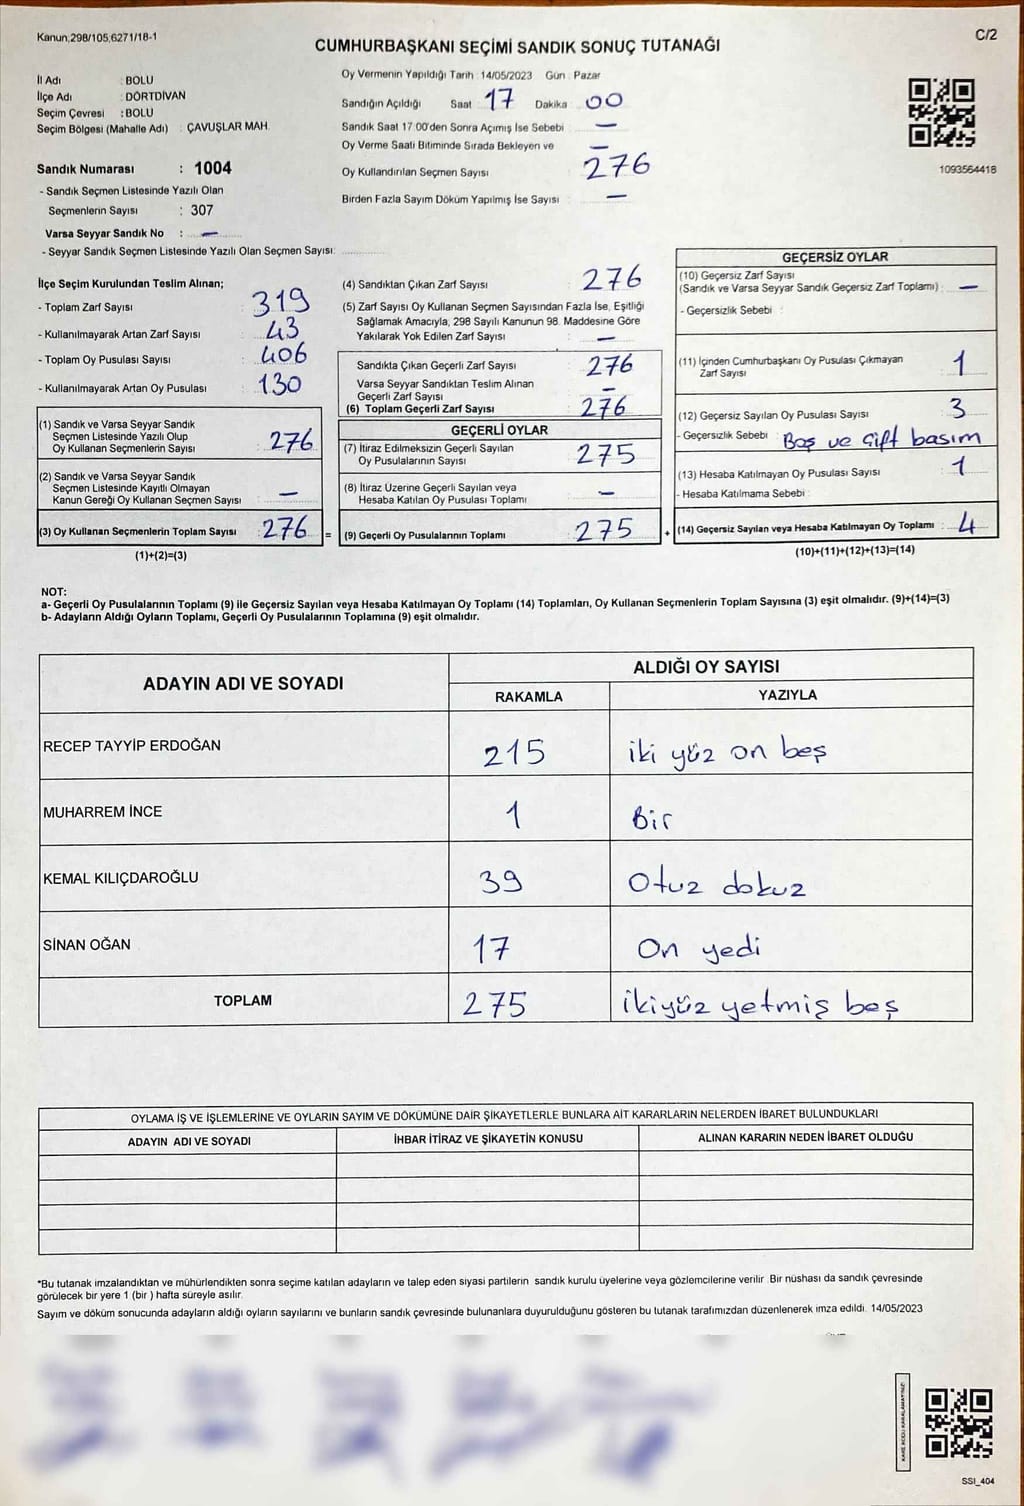 Kanun;298/105,6271/18-1
C/2
CUMHURBAŞKANI SEÇİMİ SANDIK SONUÇ TUTANAĞI
İl Adı : BOLU
İlçe Adı : DÖRTDİVAN
Seçim Çevresi : BOLU
Seçim Bölgesi (Mahalle Adı) : ÇAVUŞLAR MAH.
Sandık Numarası : 1004
- Sandık Seçmen Listesinde Yazılı Olan
Seçmenlerin Sayısı : 307
Varsa Seyyar Sandık No : —
- Seyyar Sandık Seçmen Listesinde Yazılı Olan Seçmen Sayısı:
Oy Vermenin Yapıldığı Tarih : 14/05/2023 Gün : Pazar
Sandığın Açıldığı Saat 17 Dakika 00
Sandık Saat 17:00'den Sonra Açımış İse Sebebi : —
Oy Verme Saati Bitiminde Sırada Bekleyen ve —
Oy Kullandırılan Seçmen Sayısı : 276
Birden Fazla Sayım Döküm Yapılmış İse Sayısı : —
1093564418
İlçe Seçim Kurulundan Teslim Alınan;
- Toplam Zarf Sayısı : 319
- Kullanılmayarak Artan Zarf Sayısı : 43
- Toplam Oy Pusulası Sayısı : 406
- Kullanılmayarak Artan Oy Pusulası : 130
(1) Sandık ve Varsa Seyyar Sandık
Seçmen Listesinde Yazılı Olup
Oy Kullanan Seçmenlerin Sayısı : 276
(2) Sandık ve Varsa Seyyar Sandık
Seçmen Listesinde Kayıtlı Olmayan
Kanun Gereği Oy Kullanan Seçmen Sayısı : —
(3) Oy Kullanan Seçmenlerin Toplam Sayısı : 276 =
(1)+(2)=(3)
(4) Sandıktan Çıkan Zarf Sayısı : 276
(5) Zarf Sayısı Oy Kullanan Seçmen Sayısından Fazla İse, Eşitliği
Sağlamak Amacıyla, 298 Sayılı Kanunun 98. Maddesine Göre
Yakılarak Yok Edilen Zarf Sayısı : —
Sandıkta Çıkan Geçerli Zarf Sayısı : 276
Varsa Seyyar Sandıktan Teslim Alınan
Geçerli Zarf Sayısı : —
(6) Toplam Geçerli Zarf Sayısı : 276
GEÇERLİ OYLAR
(7) İtiraz Edilmeksizin Geçerli Sayılan
Oy Pusulalarının Sayısı : 275
(8) İtiraz Üzerine Geçerli Sayılan veya
Hesaba Katılan Oy Pusulası Toplamı : —
(9) Geçerli Oy Pusulalarının Toplamı : 275 +
GEÇERSİZ OYLAR
(10) Geçersiz Zarf Sayısı
(Sandık ve Varsa Seyyar Sandık Geçersiz Zarf Toplamı) : —
- Geçersizlik Sebebi :
(11) İçinden Cumhurbaşkanı Oy Pusulası Çıkmayan
Zarf Sayısı : 1
(12) Geçersiz Sayılan Oy Pusulası Sayısı : 3
- Geçersizlik Sebebi : Boş ve çift basım
(13) Hesaba Katılmayan Oy Pusulası Sayısı : 1
- Hesaba Katılmama Sebebi :
(14) Geçersiz Sayılan veya Hesaba Katılmayan Oy Toplamı : 4
(10)+(11)+(12)+(13)=(14)
NOT:
a- Geçerli Oy Pusulalarının Toplamı (9) ile Geçersiz Sayılan veya Hesaba Katılmayan Oy Toplamı (14) Toplamları, Oy Kullanan Seçmenlerin Toplam Sayısına (3) eşit olmalıdır. (9)+(14)=(3)
b- Adayların Aldığı Oyların Toplamı, Geçerli Oy Pusulalarının Toplamına (9) eşit olmalıdır.
ADAYIN ADI VE SOYADI
ALDIĞI OY SAYISI
RAKAMLA YAZIYLA
RECEP TAYYİP ERDOĞAN 215 iki yüz on beş
MUHARREM İNCE 1 Bir
KEMAL KILIÇDAROĞLU 39 Otuz dokuz
SİNAN OĞAN 17 On yedi
TOPLAM 275 ikiyüz yetmiş beş
OYLAMA İŞ VE İŞLEMLERİNE VE OYLARIN SAYIM VE DÖKÜMÜNE DAİR ŞİKAYETLERLE BUNLARA AİT KARARLARIN NELERDEN İBARET BULUNDUKLARI
ADAYIN ADI VE SOYADI İHBAR İTİRAZ VE ŞİKAYETİN KONUSU ALINAN KARARIN NEDEN İBARET OLDUĞU
*Bu tutanak imzalandıktan ve mühürlendikten sonra seçime katılan adayların ve talep eden siyasi partilerin sandık kurulu üyelerine veya gözlemcilerine verilir. Bir nüshası da sandık çevresinde
görülecek bir yere 1 (bir) hafta süreyle asılır.
Sayım ve döküm sonucunda adayların aldığı oyların sayılarını ve bunların sandık çevresinde bulunanlara duyurulduğunu gösteren bu tutanak tarafımızdan düzenlenerek imza edildi. 14/05/2023
KARE KODU KARALAMAYINIZ!
SSI_404